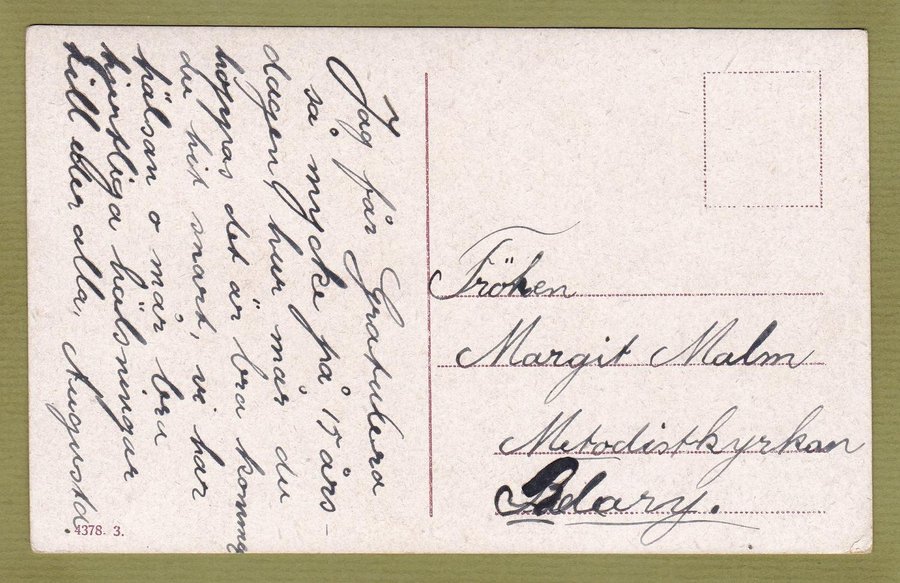 Jag får Gratulera
så mycke på 15 års-
dagen, hur mår du
hoppas det är bra komme
du hit snart, vi har
hälsan o mår bra
hjertliga hälsningar
till eder alla, Augusta.
Fröken
Margit Malm
Metodistkyrkan
4378. 3.